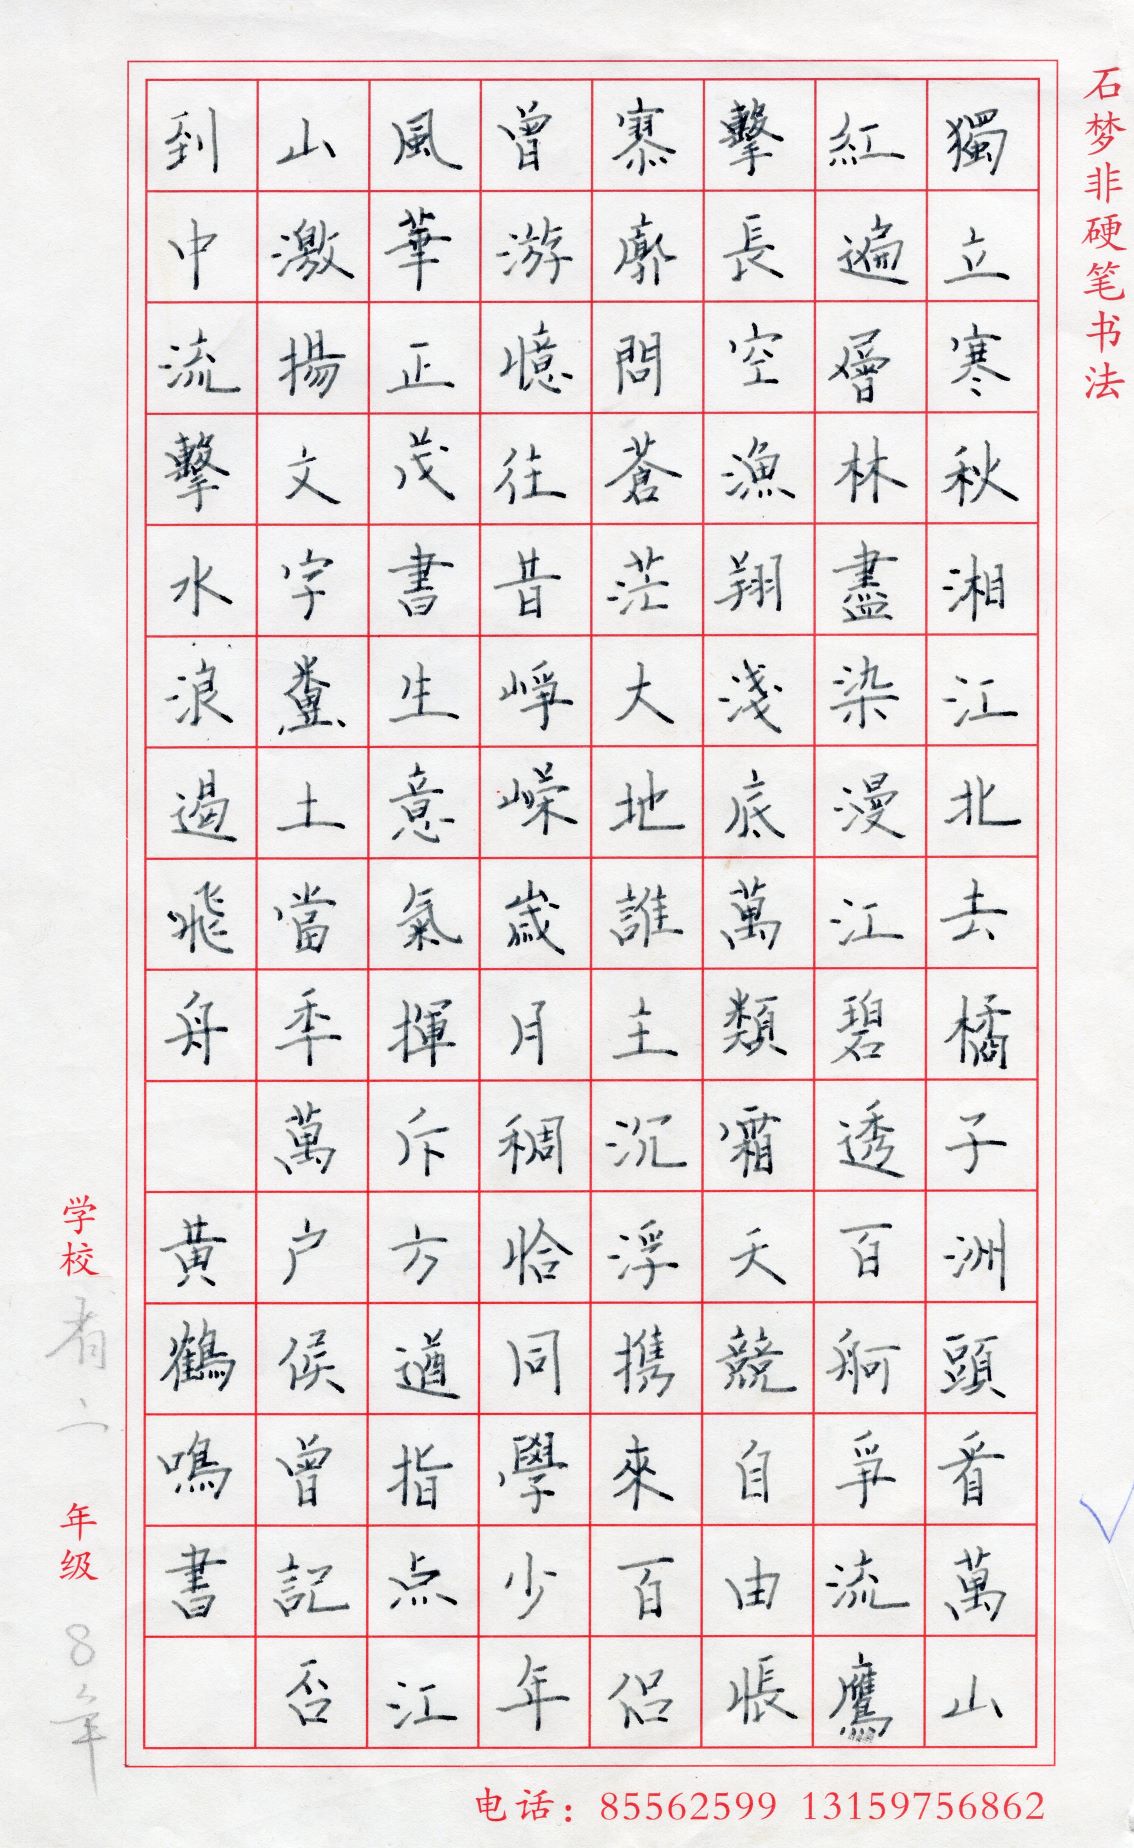 石梦非硬笔书法
獨立寒秋湘江北去橘子洲頭看萬山
紅遍層林盡染漫江碧透百舸爭流鷹
擊長空漁翔淺底萬類霜天競自由悵
寥廓問蒼茫大地誰主沉浮携來百侣
曾游憶往昔崢嶸歲月稠恰同學少年
風華正茂書生意氣揮斥方遒指点江
山激揚文字糞土當年萬户侯曾記否
到中流擊水浪遏飛舟 黃鶴鳴書
学校 年级 8年
电话：85562599 13159756862